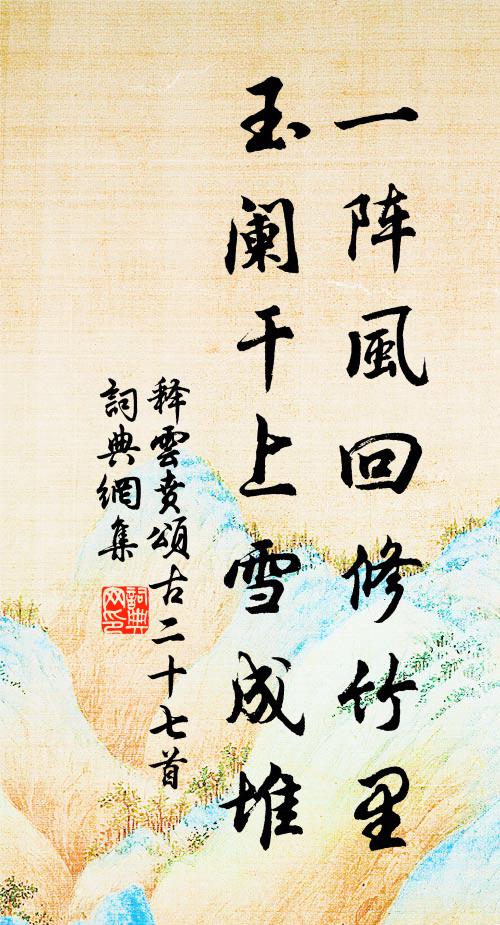 一阵風回修竹里
玉阑干上雪成堆
释雲贲頌古二十七首
詞典網集
詞典
网印